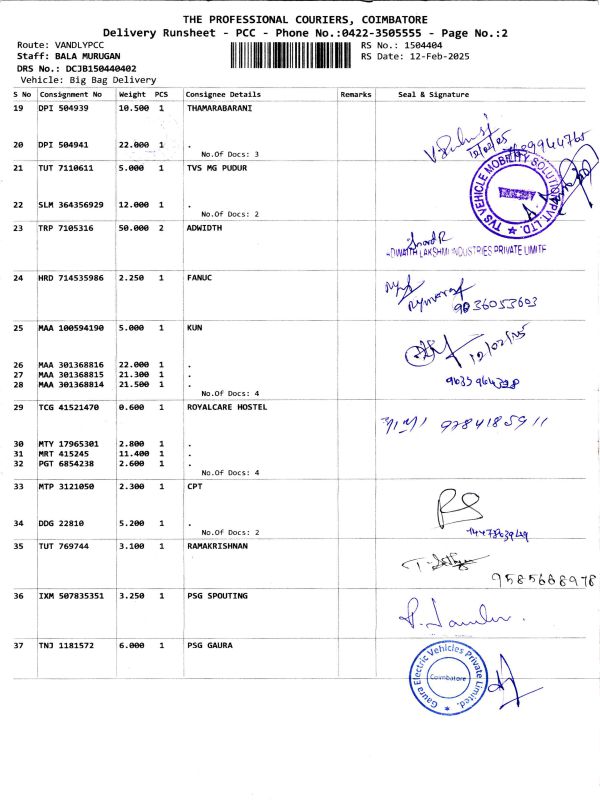 THE PROFESSIONAL COURIERS, COIMBATORE
Delivery Runsheet - PCC - Phone No.:0422-3505555 - Page No.:2
Route: VANDLYPCC RS No.: 1504404
Staff: BALA MURUGAN RS Date: 12-Feb-2025
DRS No.: DCJB150440402
Vehicle: Big Bag Delivery
S No Consignment No Weight PCS Consignee Details Remarks Seal & Signature
19 DPI 504939 10.500 1 THAMARABARANI
20 DPI 504941 22.000 1 .
12/02/25
No.Of Docs: 3
21 TUT 7110611 5.000 1 TVS MG PUDUR
TVS VEHICLE MOBILITY SOLUTION PVT. LTD. ★
22 SLM 364356929 12.000 1 .
No.Of Docs: 2
23 TRP 7105316 50.000 2 ADWIDTH
ADWAITH LAKSHMI INDUSTRIES PRIVATE LIMITE
24 HRD 714535986 2.250 1 FANUC
9036053603
25 MAA 100594190 5.000 1 KUN
12/02/25
26 MAA 301368816 22.000 1 .
27 MAA 301368815 21.300 1 .
28 MAA 301368814 21.500 1 .
No.Of Docs: 4
29 TCG 41521470 0.600 1 ROYALCARE HOSTEL
9784185911
30 MTY 17965301 2.800 1 .
31 MRT 415245 11.400 1 .
32 PGT 6854238 2.600 1 .
No.Of Docs: 4
33 MTP 3121050 2.300 1 CPT
34 DDG 22810 5.200 1 .
No.Of Docs: 2
35 TUT 769744 3.100 1 RAMAKRISHNAN
9585688978
36 IXM 507835351 3.250 1 PSG SPOUTING
37 TNJ 1181572 6.000 1 PSG GAURA
Gaura Electric Vehicles Private Limited. ★
Coimbatore